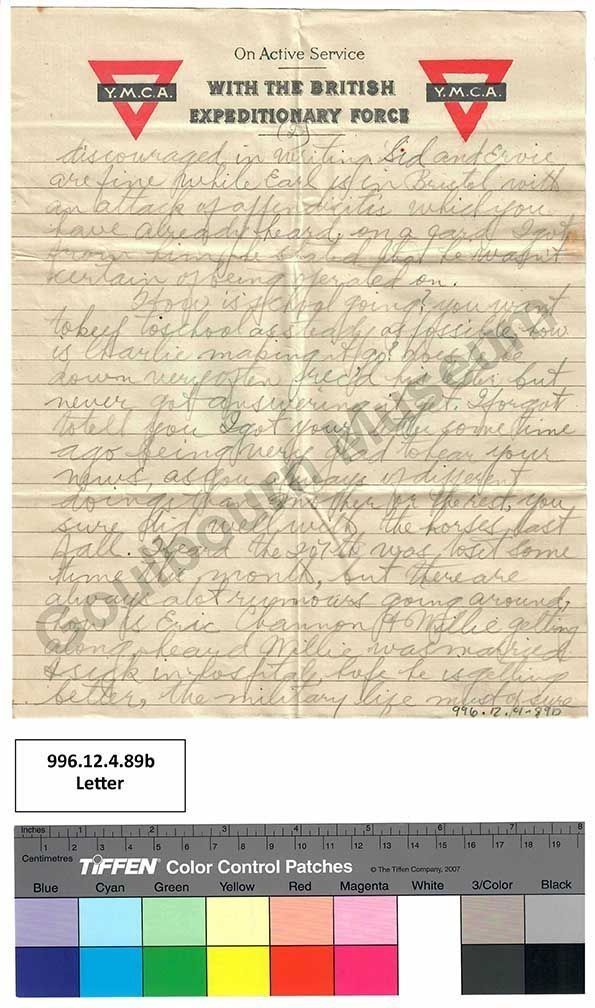 On Active Service
WITH THE BRITISH
EXPEDITIONARY FORCE
Y.M.C.A.
Y.M.C.A.
(2)
discouraged in writing. Sid and Ervie
are fine while Earl is in Bristol with
an attack of appendicitis which you
have already heard, on a card I got
from him he stated that he wasn't
certain of being operated on.
How is school going? you want
to keep to school as steady as possible how
is Charlie making it go? does he
down very often rec'd his letter but
never got answering it yet. I forgot
to tell you I got your letter some time
ago being very glad to hear your
news, as you always different
doings than mother or the rest, you
sure did well with the horses last
Fall. Heard the 207th was to sit some
time this month, but there are
always alot rumours going around,
how is Eric Channon & Willie getting
along, heard Willie was married
& sick in hospital, hope he is getting
better, the military life must of sure
996.12.4.89b
Goulbourn Museum
996.12.4.89b
Letter
Inches 1 2 3 4 5 6 7 8
Centimetres 1 2 3 4 5 6 7 8 9 10 11 12 13 14 15 16 17 18 19
TIFFEN Color Control Patches © The Tiffen Company, 2007
Blue Cyan Green Yellow Red Magenta White 3/Color Black